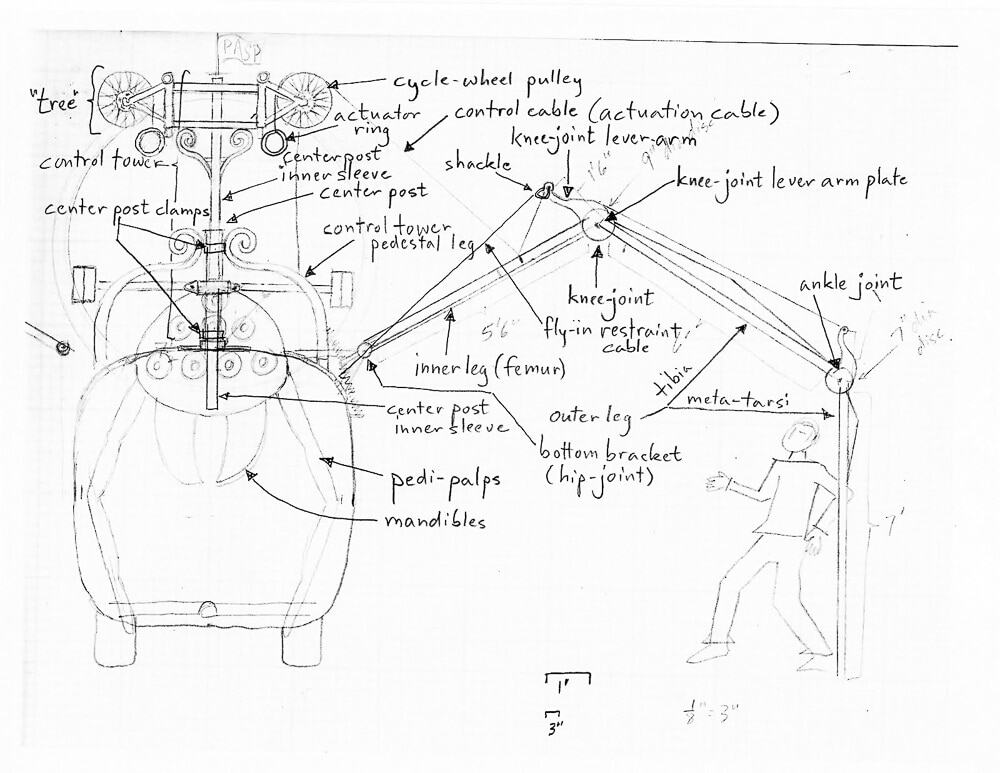 PASP
"tree"
cycle-wheel pulley
actuator
ring
control cable (actuation cable)
knee-joint lever-arm
disc
control tower
center post
inner sleeve
center post
shackle
1'6"
9"
knee-joint lever arm plate
center post clamps
control tower
pedestal leg
knee-joint
ankle joint
5'6"
fly-in restraint
cable
7" dia
disc
inner leg (femur)
tibia
meta-tarsi
center post
inner sleeve
outer leg
bottom bracket
(hip-joint)
pedi-palps
mandibles
7'
1'
3"
1/8" = 3"